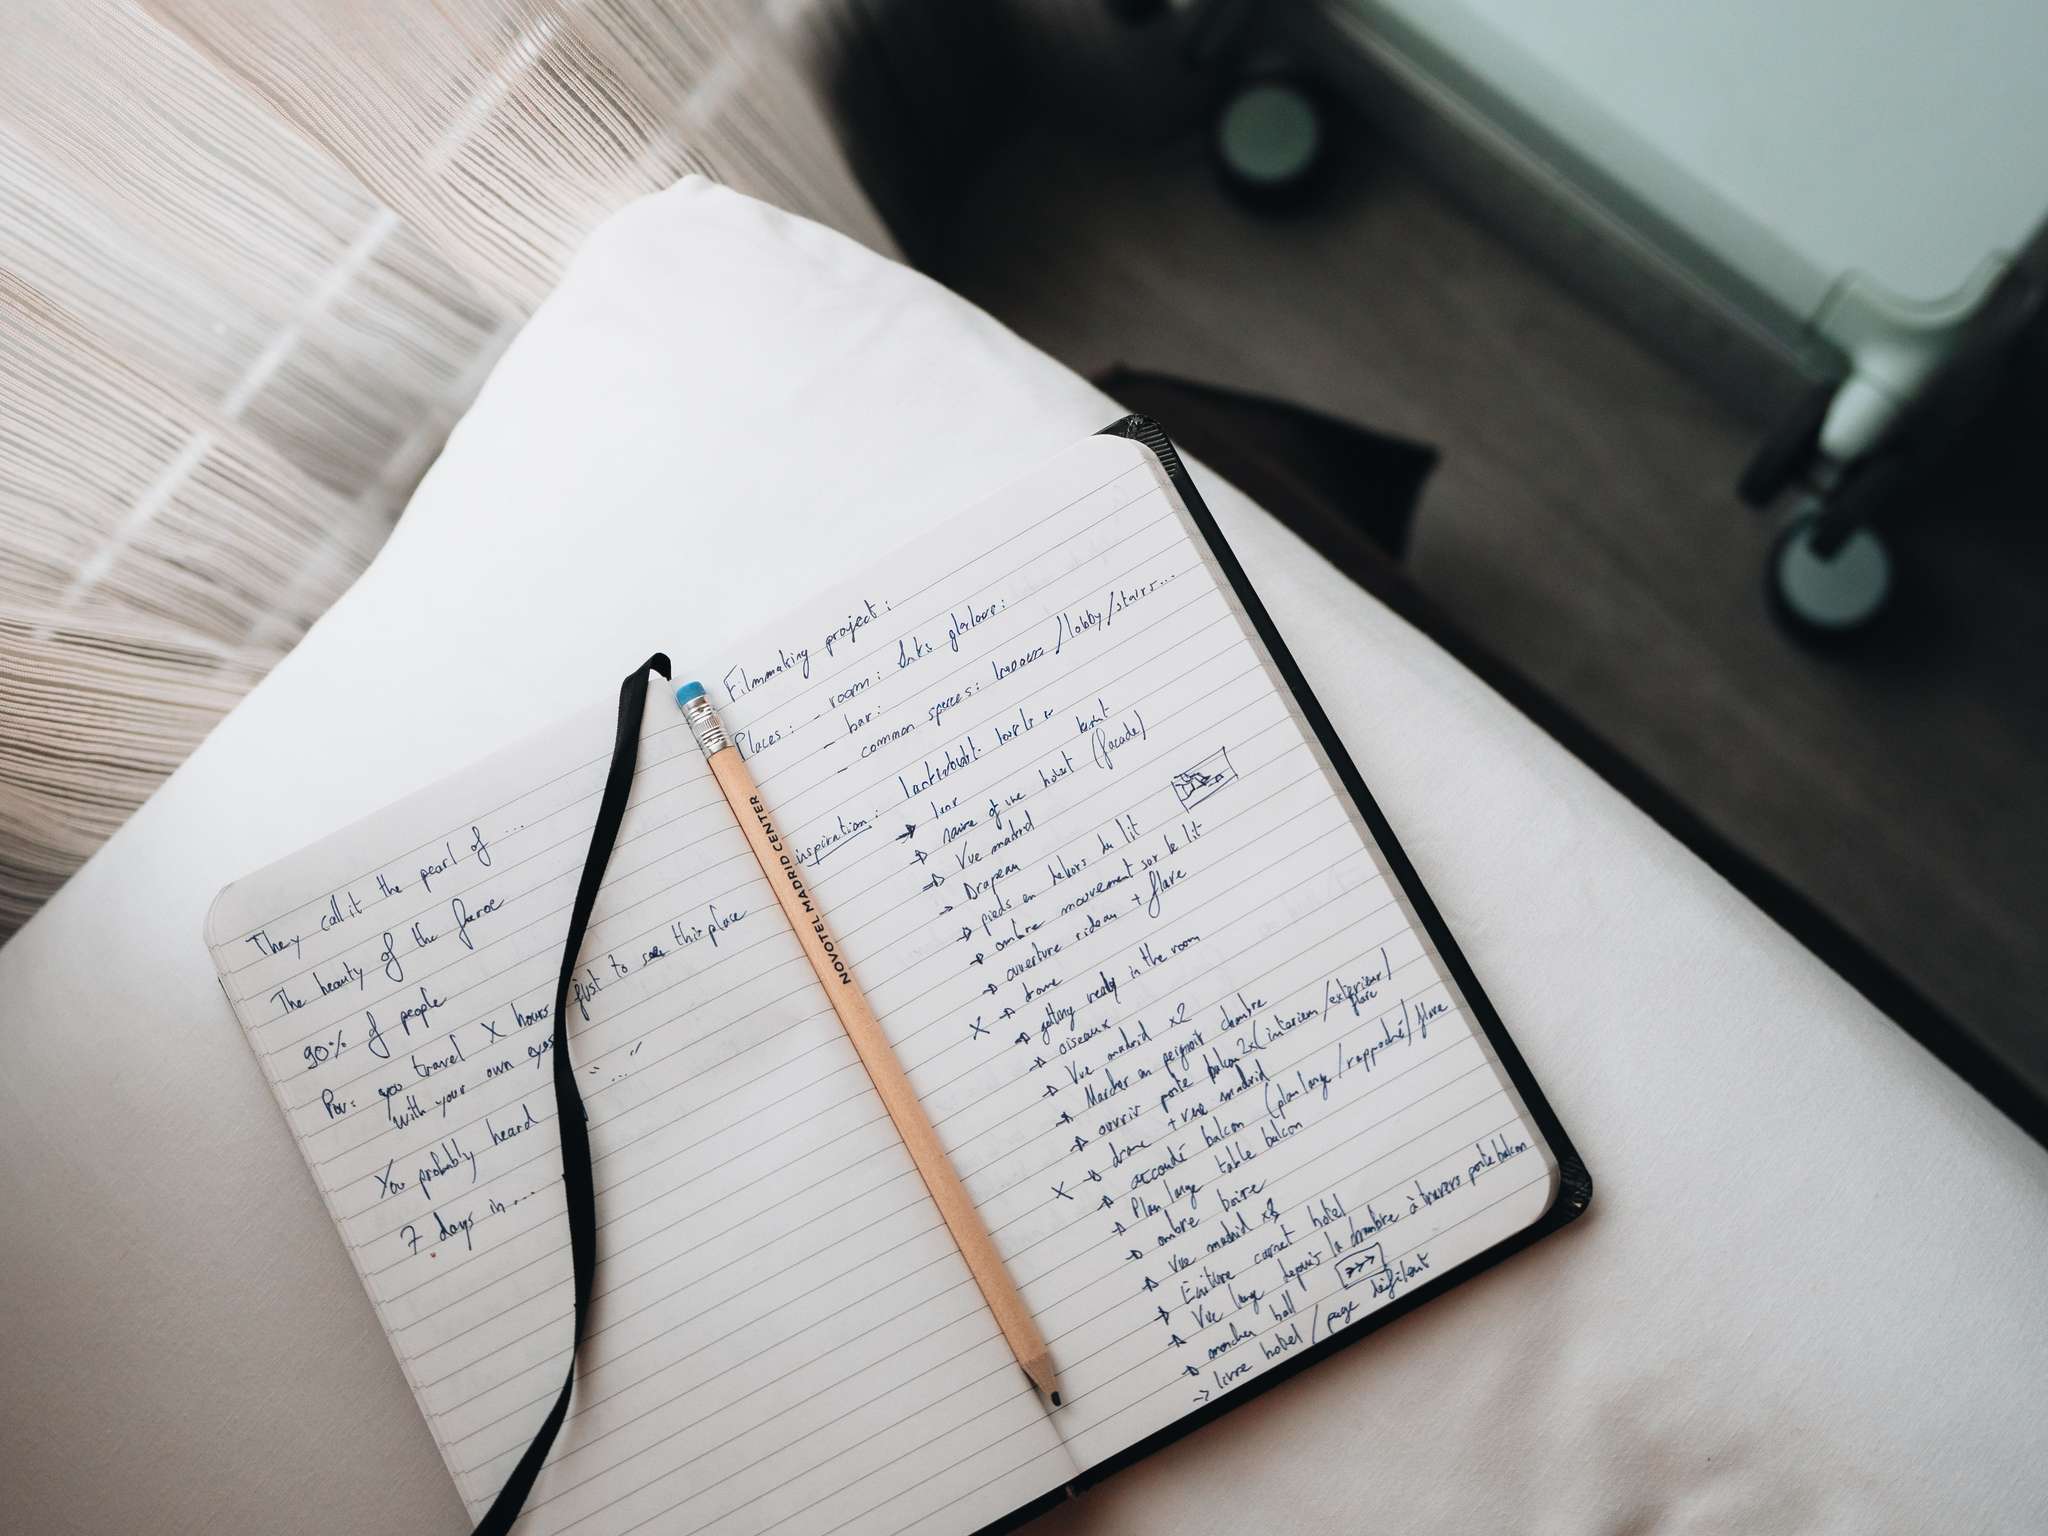 They call it the pearl of ...
The beauty of the faroe
90% of people
Pov: you travel X hours just to see this place
with your own eyes
You probably heard "..."
7 days in...
NOVOTEL MADRID CENTER
Filmmaking project:
Places: - room:
- bar:
- common spaces: / lobby / stairs...
inspiration:
→ name of the hotel (facade)
→ Vue madrid
→ Drapeau
→ pieds en dehors du lit
→ ombre mouvement sur le lit
→ ouverture rideau + flare
X → drone
→ getting ready in the room
→ oiseaux
→ Vue madrid x2
→ Marcher en peignoir chambre
→ ouvrir porte balcon 2x (interieur / exterieur / flare
X → drone + vue madrid
→ accoudé balcon (plan large / rapproché / flare
→ Plan large table balcon
→ ombre boire
→ Vue madrid x3
→ Ecriture carnet hotel
→ Vue large depuis la chambre à travers porte balcon
→ marcher hall >>>
→ livre hotel / page défilent